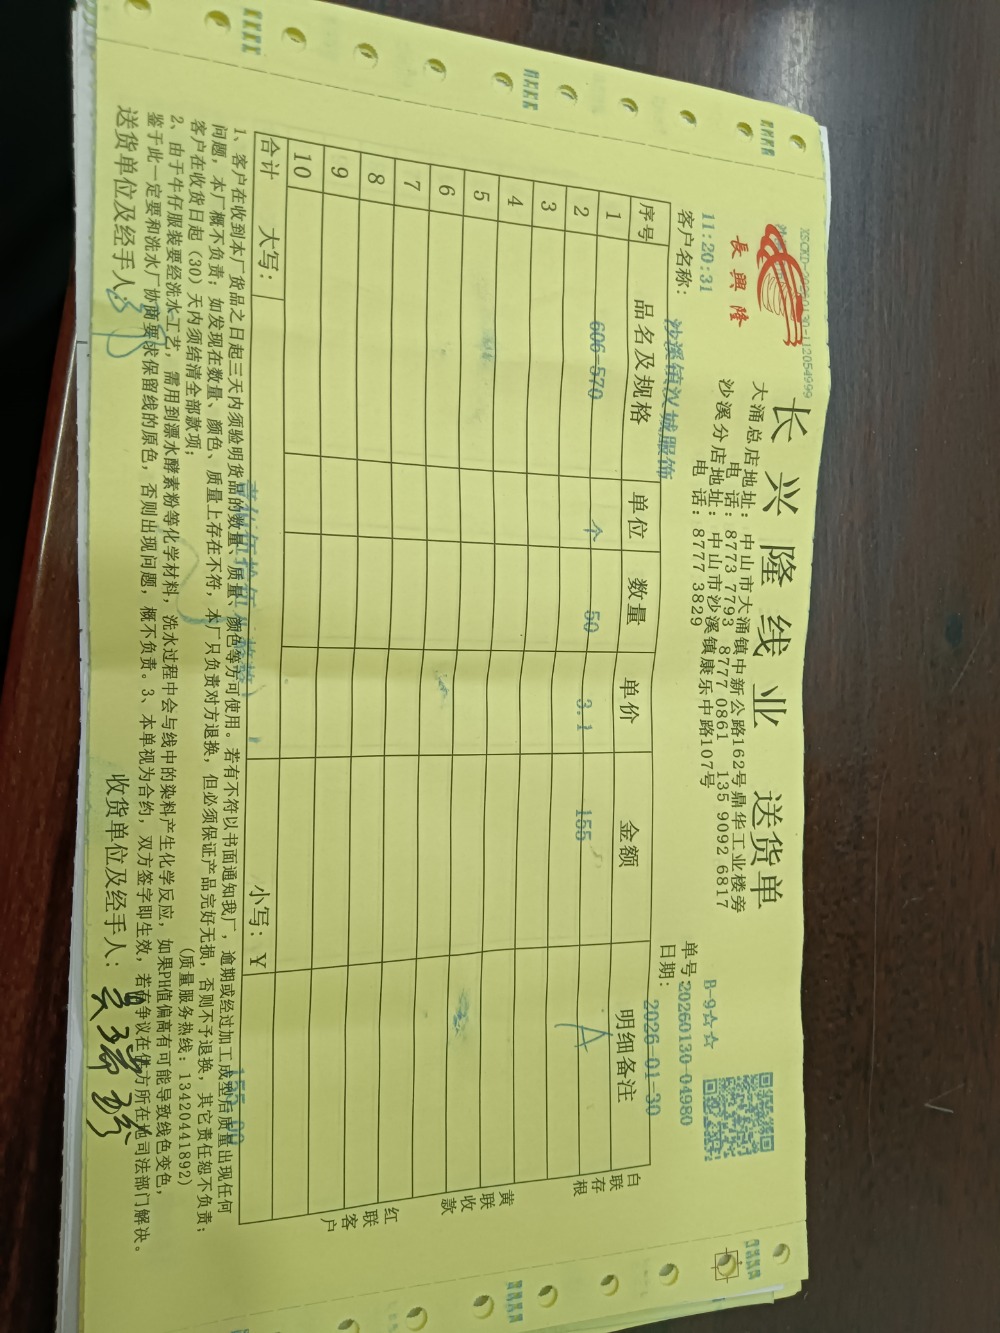 XSCKD-20260130-112054999
長興隆
11:20:31
长兴隆线业 送货单
大涌总店地址：中山市大涌镇中新公路162号鼎华工业楼旁
电话：8773 7793 8777 0861 135 9092 6817
沙溪分店地址：中山市沙溪镇康乐中路107号
电话：8777 3829
B-9☆☆
单号：20260130-04980
客户名称：沙溪镇汉城服饰
日期：2026-01-30
序号 品名及规格 单位 数量 单价 金额 明细备注
1 606-570 个 50 3.1 155 A
2
3
4
5
6
7
8
9
10
合计 大写： 小写：￥ 155.00
白联存根
黄联收款
红联客户
1、客户在收到本厂货品之日起三天内须验明货品的数量、质量、颜色等方可使用。若有不符以书面通知我厂，逾期或经过加工成型后质量出现任何
问题，本厂概不负责；如发现在数量、颜色、质量上存在不符，本厂只负责对方退换，但必须保证产品完好无损，否则不予退换，其它责任恕不负责；
客户在收货日起（30）天内须结清全部款项；
(质量服务热线：13420441892)
2、由于牛仔服装要经洗水工艺，需用到漂水酵素粉等化学材料，洗水过程中会与线中的染料产生化学反应，如果PH值偏高有可能导致线色变色，
鉴于此一定要和洗水厂协商要求保留线的原色，否则出现问题，概不负责。3、本单视为合约，双方签字即生效，若有争议在供方所在地司法部门解决。
送货单位及经手人： 收货单位及经手人：